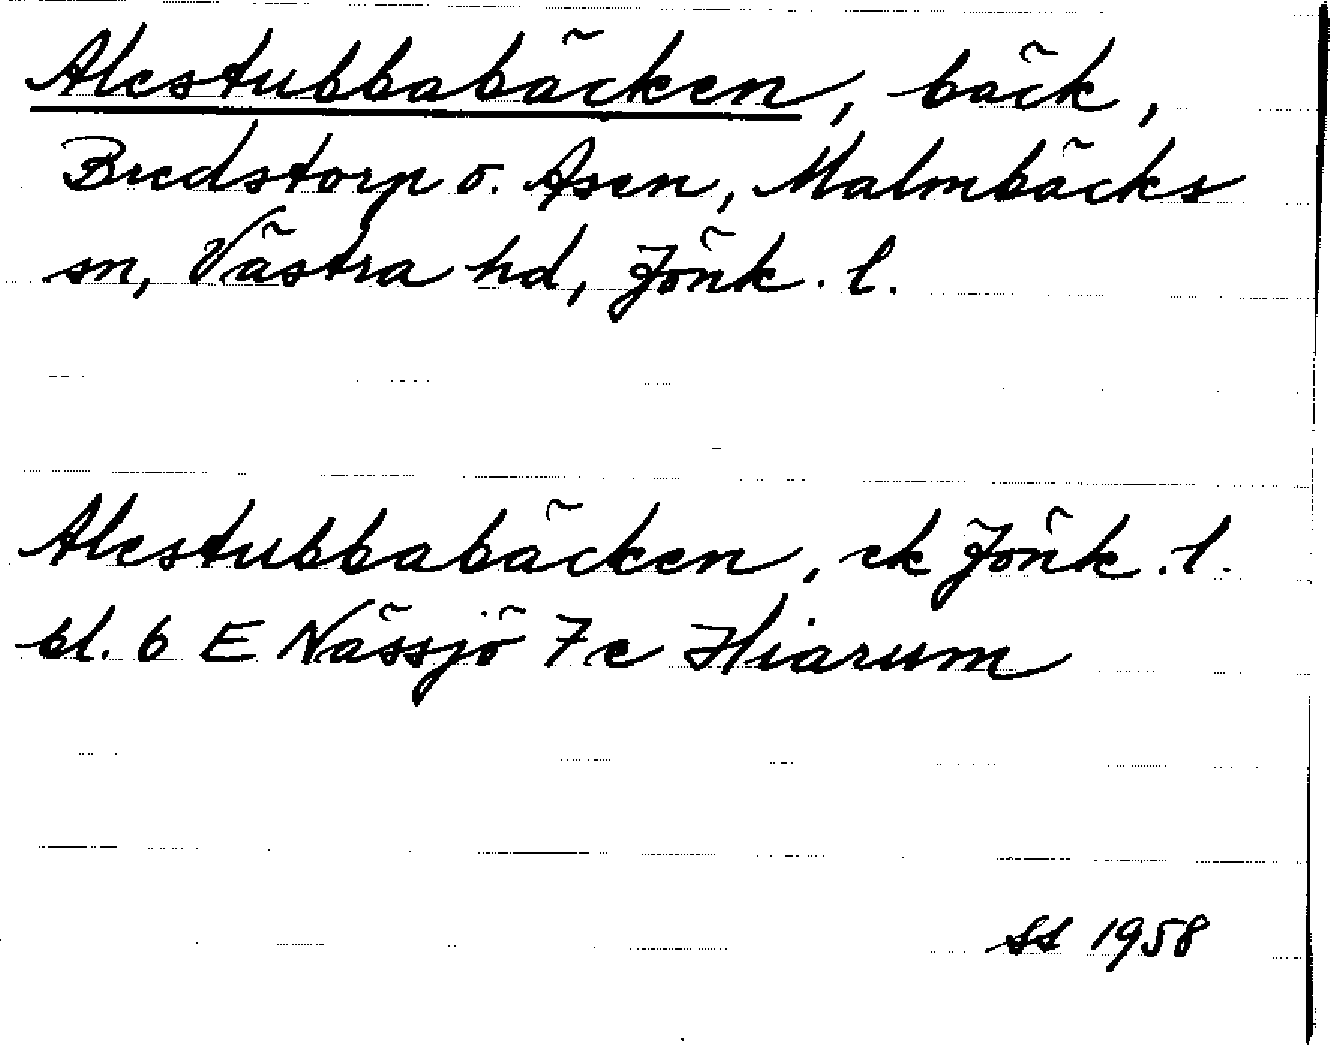 Alestubbabäcken, bäck,
Bredstorp o. Åsen, Malmbäcks
sn, Västra hd, Jönk. l.
Alestubbabäcken, ek Jönk. l.
bl. 6 E Nässjö 7 e Hiarum
SS 1958